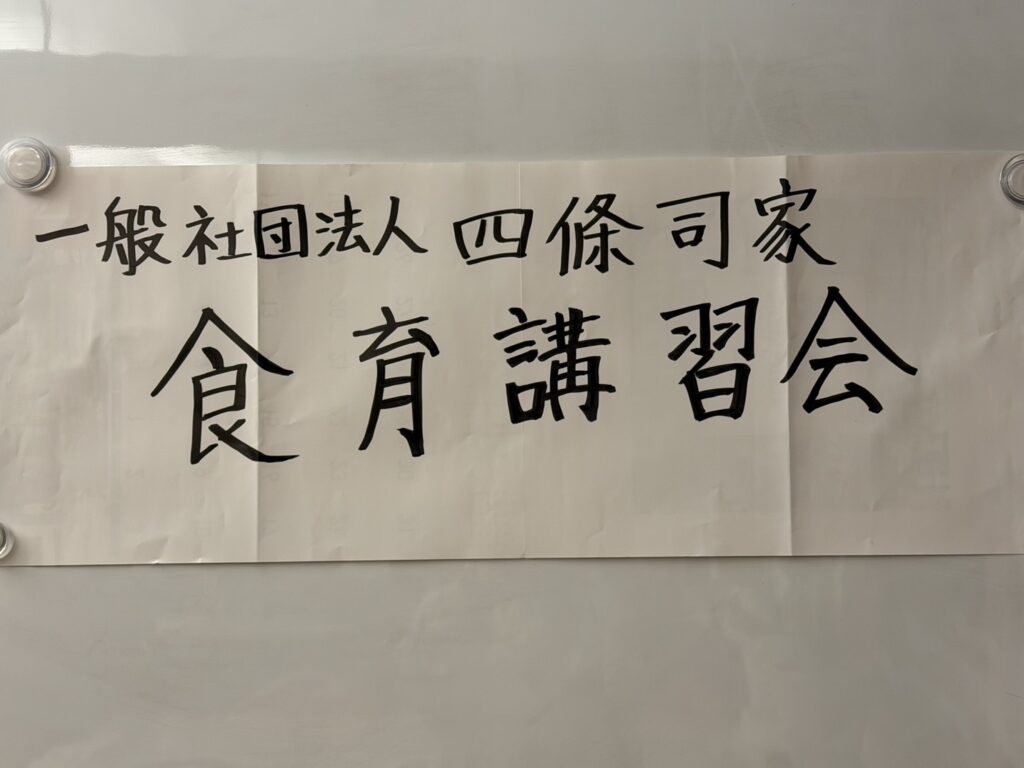 一般社団法人 四條司家
食育講習会